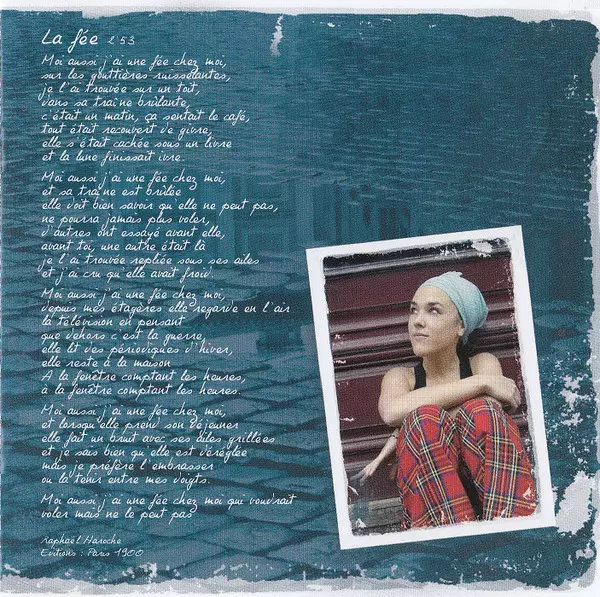 La fée 2'53
Moi aussi j'ai une fée chez moi,
sur les gouttières ruisselantes,
je l'ai trouvée sur un toit,
dans sa traîne brûlante,
c'était un matin, ça sentait le café,
tout était recouvert de givre,
elle s'était cachée sous un livre
et la lune finissait ivre.
Moi aussi j'ai une fée chez moi,
et sa traîne est brûlée
elle doit bien savoir qu'elle ne peut pas,
ne pourra jamais plus voler,
d'autres ont essayé avant elle,
avant toi, une autre était là
je l'ai trouvée repliée sous ses ailes
et j'ai cru qu'elle avait froid.
Moi aussi j'ai une fée chez moi,
depuis mes étagères elle regarde en l'air
la télévision en pensant
que dehors c'est la guerre,
elle lit des périodiques d'hiver,
elle reste à la maison
A la fenêtre comptant les heures,
à la fenêtre comptant les heures.
Moi aussi j'ai une fée chez moi,
et lorsqu'elle prend son déjeuner
elle fait un bruit avec ses ailes grillées
et je sais bien qu'elle est déréglée
mais je préfère l'embrasser
ou la tenir entre mes doigts.
Moi aussi j'ai une fée chez moi qui voudrait
voler mais ne le peut pas
raphaël Haroche
Editions : Paris 1900